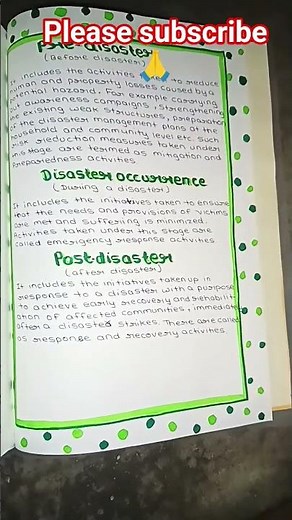 Please subscribe
🙏
Pre-disaster
(Before disaster)
It includes the activities taken to reduce
human and property losses caused by a
potential hazard. For example carrying
out awareness campaigns, strengthening
the existing weak structures, preparation
of the disaster management plans at the
household and community level etc. Such
risk rieduction measures taken under
this stage are termed as mitigation and
preparedness activities
Disaster occurrence
(During a disaster)
It includes the initiatives taken to ensure
that the needs and provisions of victims
are met and suffering is minimized.
Activities taken under this stage are
called emergency response activities
Post-disaster
(after disaster)
It includes the initiatives taken up in
response to a disaster with a purpose
to achieve early recovery and rehabilit
ation of affected communities, immediate
after a disasted strikes. There are called
as response and recovery activities.